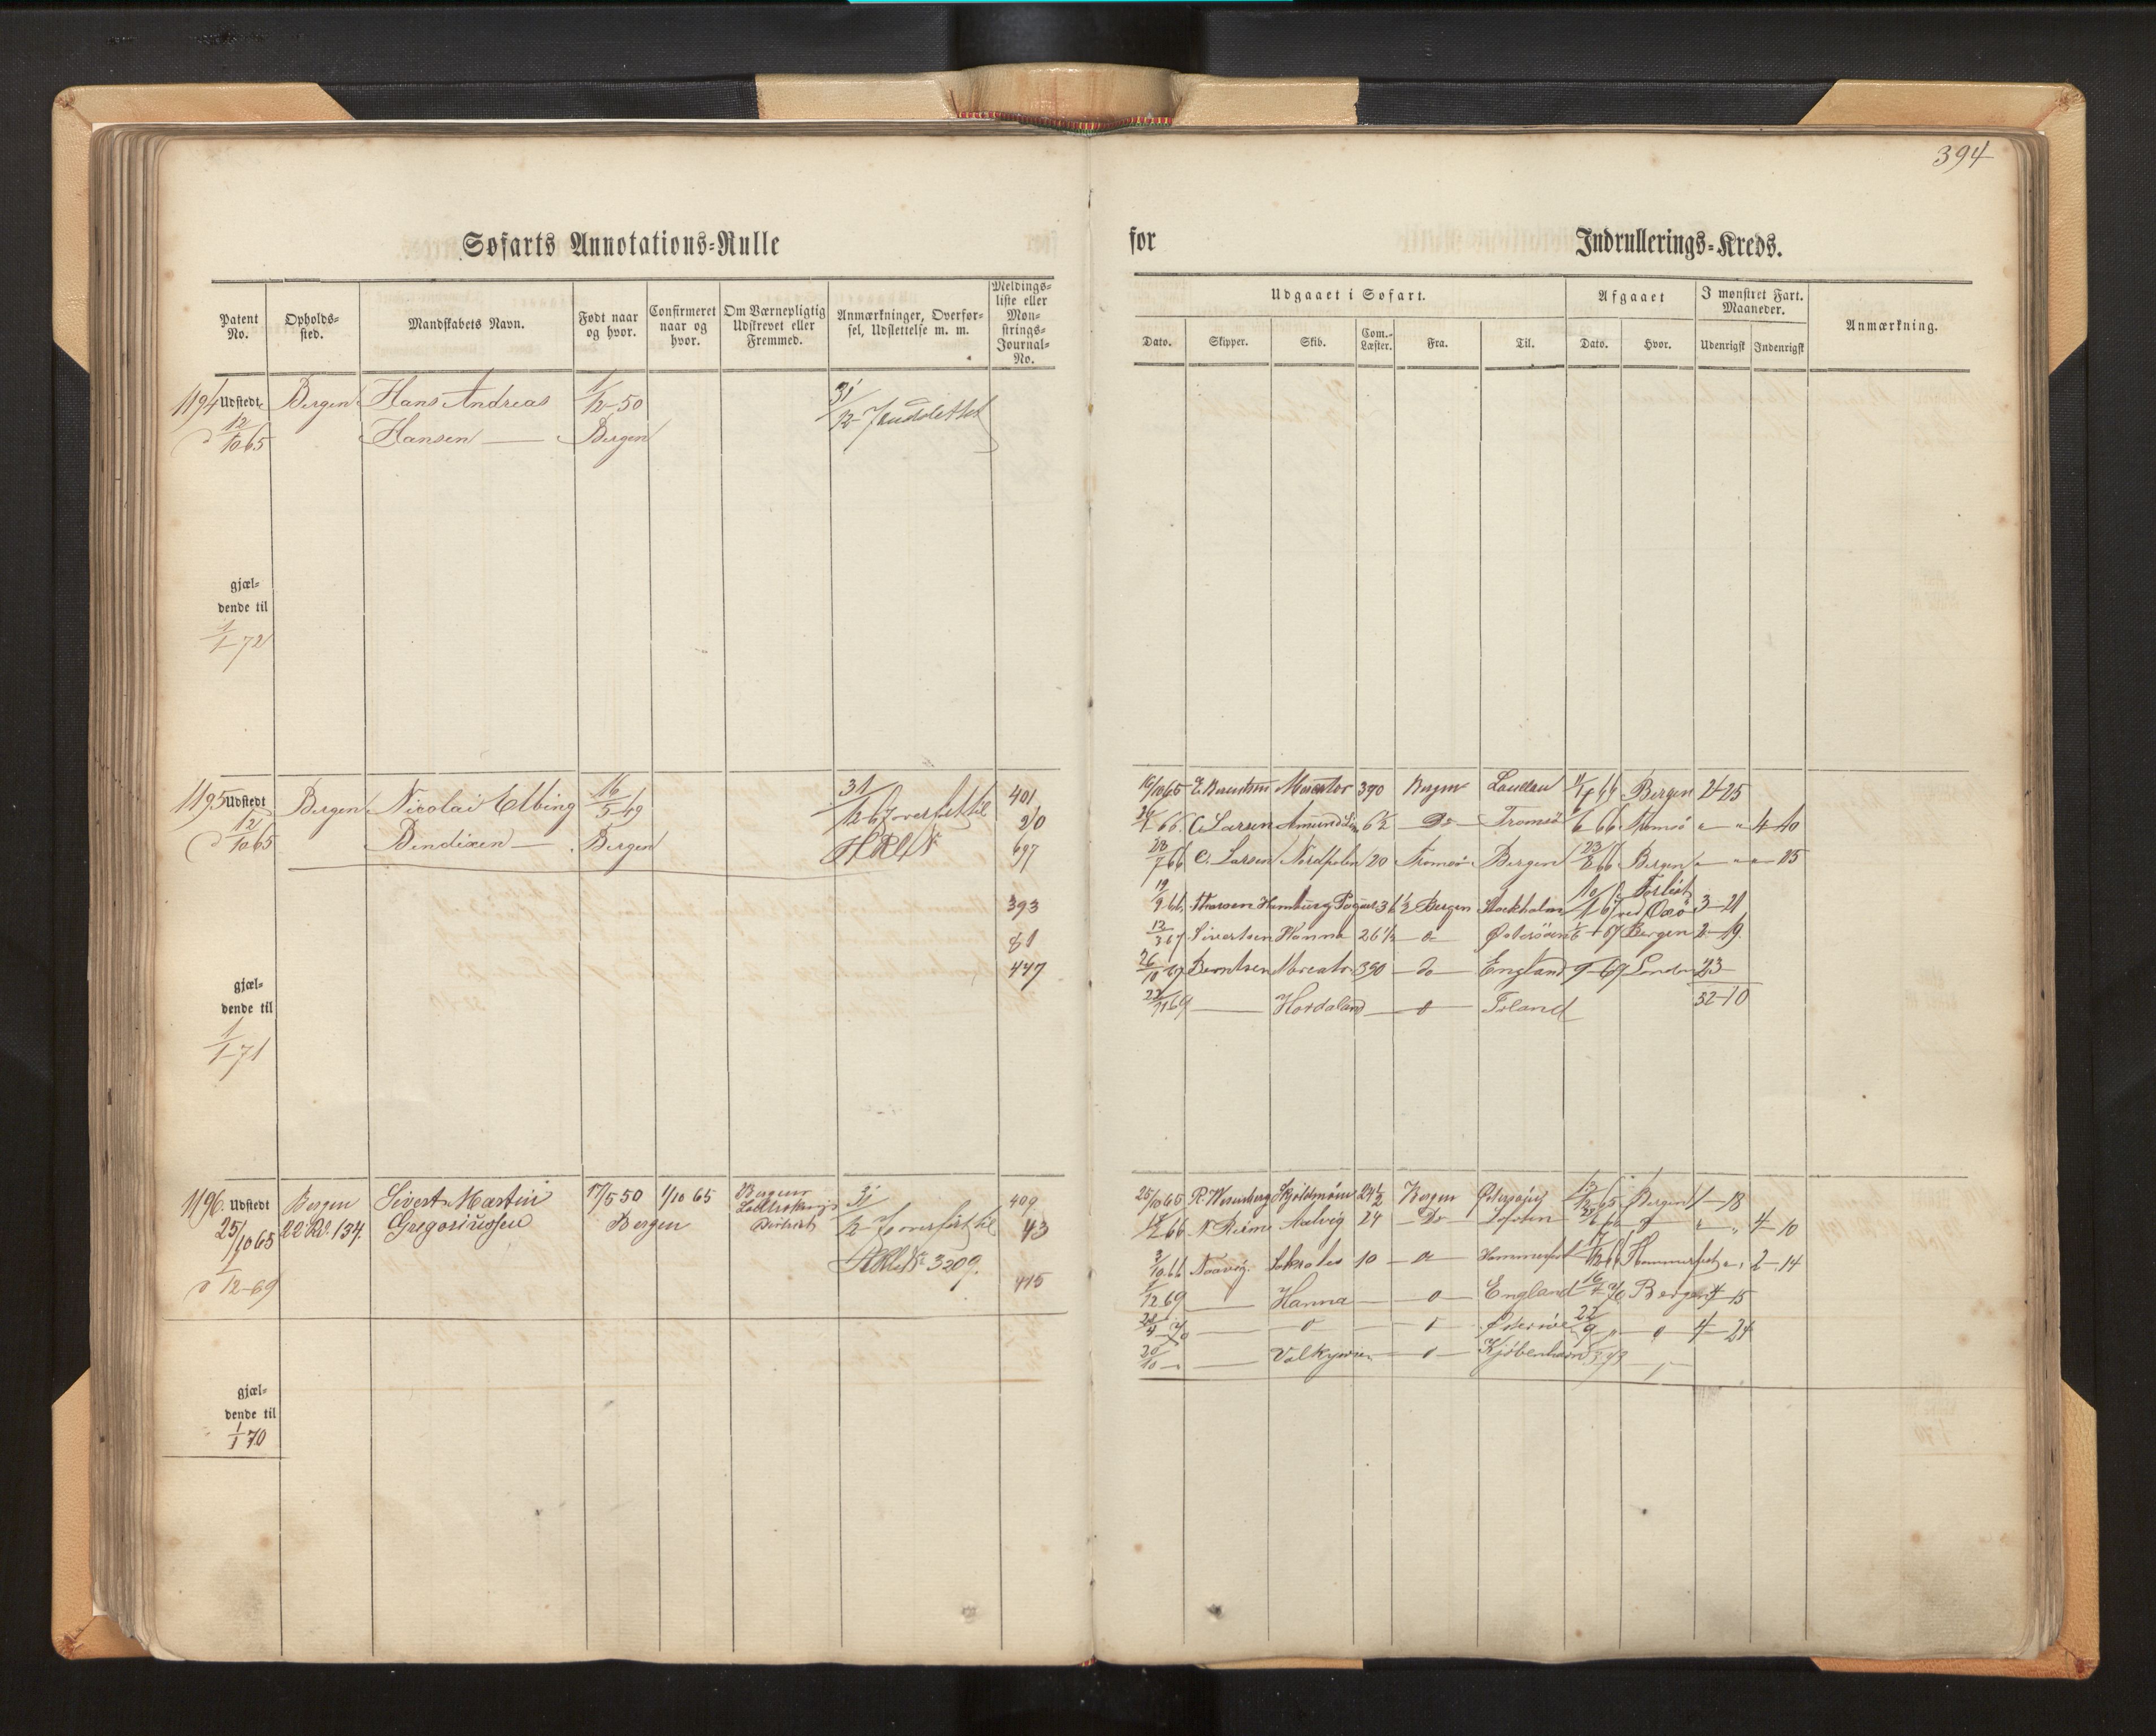 394
Søfarts Annotations-Rulle
for Indrullerings-Kreds.
Patent No. Opholds-sted. Mandskabets Navn. Født naar og hvor. Confirmeret naar og hvor. Om Værnepligtig Udskrevet eller Fremmed. Anmærkninger, Overførsel, Udslettelse m. m. Meldings-liste eller Mønstrings-Journal-No.
Udgaaet i Søfart. Afgaaet I mønstret Fart. Maaneder. Anmærkning.
Dato. Skipper. Skib. Com.-Læster. Fra. Til. Dato. Hvor. Udenrigsk Indenrigsk
1194 Udstedt Bergen Hans Andreas 1/12-50 31/12-7 udslettet
d 12/10 65 Hansen Bergen
gjæl-
dende til
1/1-72
1195 Udstedt Bergen Nicolai Elbing 16/5-49 31/12-67 overført til 401
d 12/10 65 Bendixen Bergen HRl N 20
697
393
81
447
gjæl-
dende til
1/1-71
19/10 65 Mercator 390 Bergen London Bergen 2-25
66 C. Larsen Amund 6½ Do Tromsø 66 Tromsø " " 4-10
28/7 66 C. Larsen Nordpolen 20 Tromsø Bergen 66 Bergen " " 25
Forlist
19/9 66 Hamburg 36½ Bergen Stockholm ved Oxø 3-21
12/3 67 Sivertsen Hanna 26½ do Østersøen 67 Bergen 2-19
26/10 67 Berntsen Mercator 390 do England 9-69 London 23
22/11 69 Hordaland do Island 32-10
1196 Udstedt Bergen Sivert Martin 17/5 50 1/10 65 Bergens 409
25/10 65 22 Rd. 134. Gregoriussen Bergen District overført til 43
HRl N 3209.
d 1/12-69 415
gjæl-
dende til
1/1 70
25/10 65 R. Wesenberg Skjoldmøen 24½ Bergen 13/12 65 Bergen 1-18
66 N. Reime Aalvig 24 Do Lofoten 66 do " " 4-10
3/10 66 Sokrates 10 do Hammerfest Hammerfest " 2-14
1/12 69 Hanna do England 16/4 70 Bergen 4-15
70 do do Østersøe 22/9 " do 4-24
20/10 Valkyrien do Kjøbenhavn